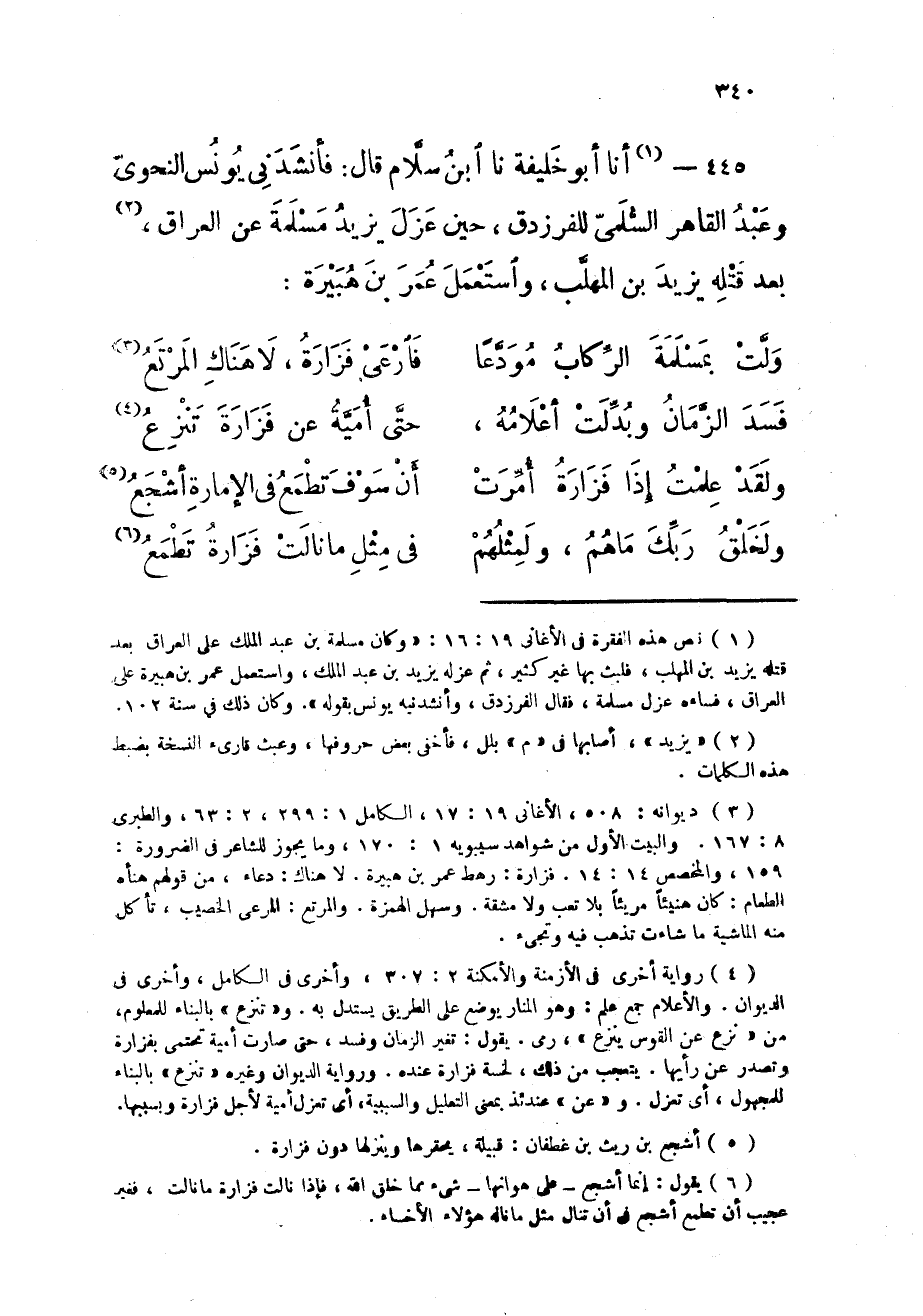 ٣٤٠
٤٤٥ — (١) أنا أبو خَليفة نا ٱبنُ سلَّام قال: فأنشدَنِي يُونُس النحوىّ
وعَبْدُ القاهر السُّلَمىّ للفرزدق، حين عَزَلَ يزيدُ مَسْلَمَةَ عن العراق،(٢)
بعد قَتْلِهِ يزيدَ بن المهلَّب، وٱستَعْمَلَ عُمَرَ بنَ هُبَيْرَة :
وَلَّتْ بِمَسْلَمَةَ الرِّكابُ مُوَدَّعًا فَٱرْعَىْ فَزَارَةُ، لَا هَنَاكِ المَرْتَعُ(٣)
فَسَدَ الزَّمَانُ وبُدِّلَتْ أعْلَامُهُ ، حتَّى أُمَيَّةُ عن فَزَارَةَ تَنْزِعُ(٤)
ولَقَدْ عِلمْتُ إذَا فَزَارَةُ أُمِّرَتْ أَنْ سَوْفَ تَطْمَعُ فى الإمارةِ أَشْجَعُ(٥)
ولَخَلْقُ رَبِّكَ مَاهُمُ ، ولَمِثْلُهُمْ فى مِثْلِ ما نالَتْ فَزَارةُ تَطْمَعُ(٦)
( ١ ) نص هذه الفقرة فى الأغانى ١٩ : ١٦ : « وكان مسلمة بن عبد الملك على العراق بعد
قتله يزيد بن المهلب ، فلبث بها غير كثير ، ثم عزله يزيد بن عبد الملك ، واستعمل عمر بن هبيرة على
العراق ، فساءه عزل مسلمة ، فقال الفرزدق ، وأنشدنيه يونس بقوله ». وكان ذلك فى سنة ١٠٢.
( ٢ ) « يزيد » ، أصابها فى « م » بلل ، فأخفى بعض حروفها ، وعبث قارىء النسخة بضبط
هذه الكلمات .
( ٣ ) ديوانه : ٥٠٨ ، الأغانى ١٩ : ١٧ ، الكامل ١ : ٢٩٩ ، ٢ : ٦٣ ، والطبرى
٨ : ١٦٧ . والبيت الأول من شواهد سيبويه ١ : ١٧٠ ، وما يجوز للشاعر فى الضرورة :
١٥٩ ، والمخصص ١٤ : ١٤ . فزارة : رهط عمر بن هبيرة . لا هناك : دعاء ، من قولهم هنأه
الطعام : كان هنيئاً مريئاً بلا تعب ولا مشقة . وسهل الهمزة . والمرتع : المرعى الخصيب ، تأكل
منه الماشية ما شاءت تذهب فيه وتجىء .
( ٤ ) رواية أخرى فى الأزمنة والأمكنة ٢ : ٣٠٧ ، وأخرى فى الكامل ، وأخرى فى
الديوان . والأعلام جمع علم : وهو المنار يوضع على الطريق يستدل به . و« تنزع » بالبناء للمعلوم،
من « نزع عن القوس ينزع » ، رمى . يقول : تغير الزمان وفسد ، حتى صارت أمية تحتمى بفزارة
وتصدر عن رأيها . يتعجب من ذلك ، لخسة فزارة عنده . ورواية الديوان وغيره « تنزع » بالبناء
للمجهول ، أى تعزل . و « عن » عندئذ بمعنى التعليل والسببية، أى تعزل أمية لأجل فزارة وبسببها.
( ٥ ) أشجع بن ريث بن غطفان : قبيلة ، يحقرها وينزلها دون فزارة .
( ٦ ) يقول : إنما أشجع – على هوانها – شىء مما خلق الله ، فإذا نالت فزارة ما نالت ، فغير
عجيب أن تطمع أشجع فى أن تنال مثل ما ناله هؤلاء الأخساء .